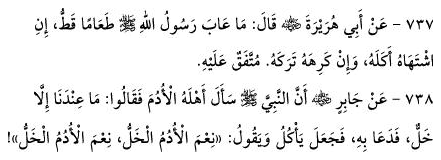 ٧٣٧ - عَنْ أَبِي هُرَيْرَةَ ﵁ قَالَ: مَا عَابَ رَسُولُ اللهِ ﷺ طَعَامًا قَطُّ، إِنِ
اشْتَهَاهُ أَكَلَهُ، وَإِنْ كَرِهَهُ تَرَكَهُ. مُتَّفَقٌ عَلَيْهِ.
٧٣٨ - عَنْ جَابِرٍ ﵁ أَنَّ النَّبِيَّ ﷺ سَأَلَ أَهْلَهُ الْأُدُمَ فَقَالُوا: مَا عِنْدَنَا إِلَّا
خَلٌّ، فَدَعَا بِهِ، فَجَعَلَ يَأْكُلُ وَيَقُولُ: «نِعْمَ الْأُدُمُ الْخَلُّ، نِعْمَ الْأُدُمُ الْخَلُّ»!